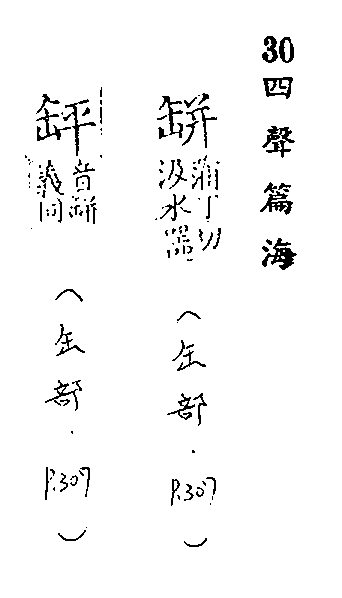 30四聲篇海
缾 蒲丁切 汲水器
(缶部.P.307)
缻 音缾 義同
(缶部.P.307)